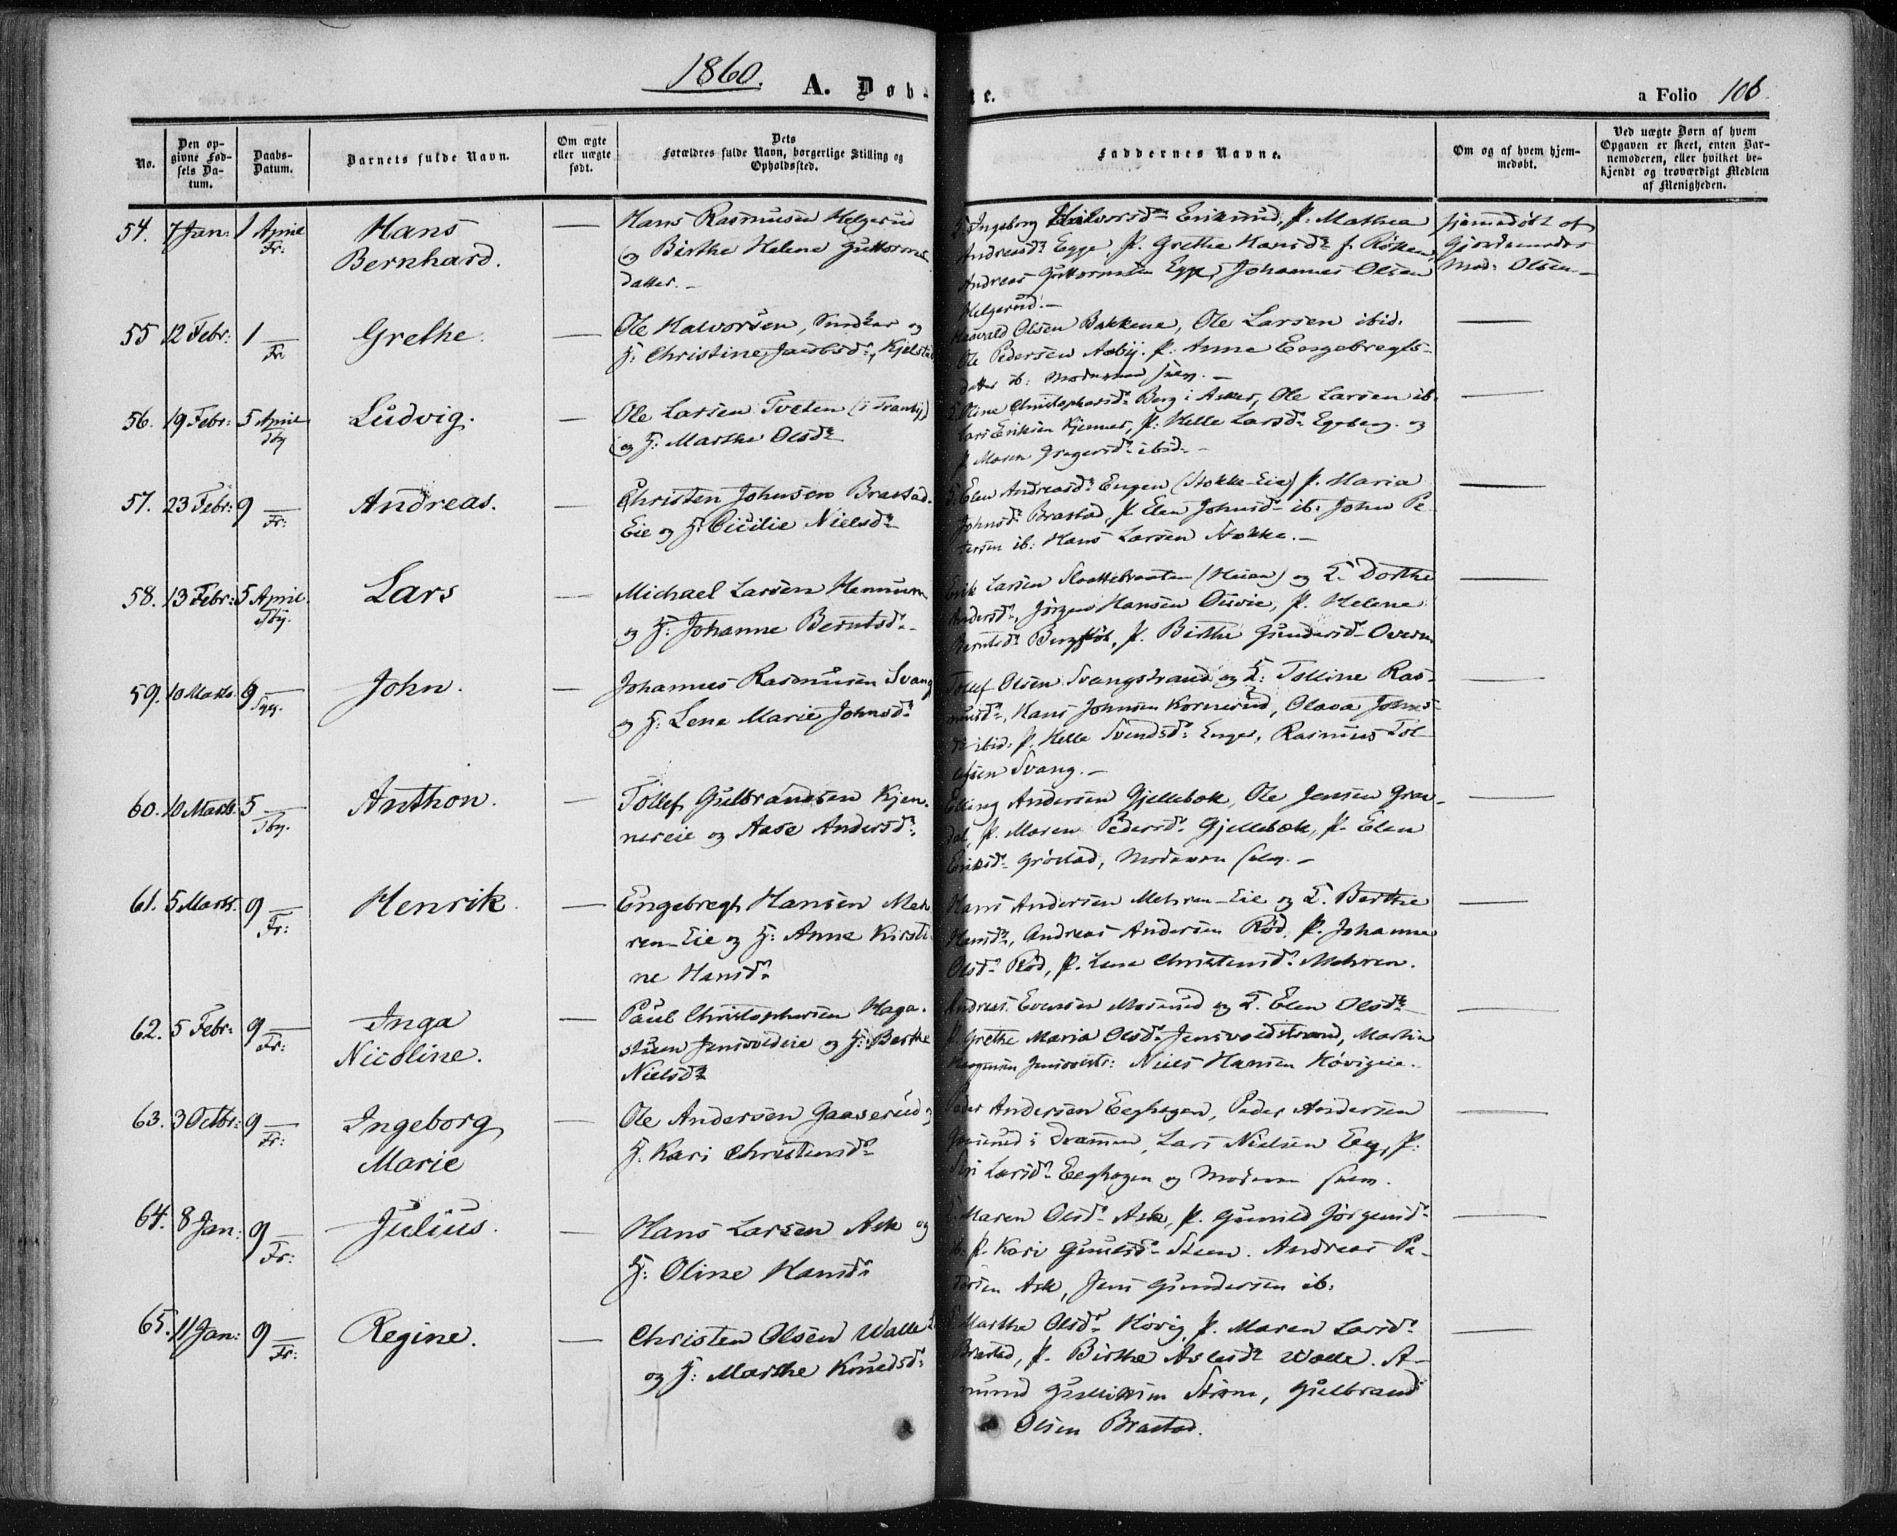 1860.
A. Døb
te.
a Folio 106.
No.
Den opgivne Fødsels Datum.
Daabs-Datum.
Barnets fulde Navn.
Om ægte eller uægte født.
Dets Forældres fulde Navn, borgerlige Stilling og Opholdssted.
Faddernes Navne.
Om og af hvem hjemmedøbt.
Ved uægte Børn af hvem Opgaven er skeet, enten Barnemoderen, eller hvilket bekjendt og troværdigt Medlem af Menigheden.
54. 7 Jan: 1 April Fr: Hans Bernhard. —
Hans Rasmusen Helgerud
og Birthe Helene Guttorms
datter. —
Ingeborg Halvorsd: Eriksrud, P. Mathea
Andreasd: Egge, P. Grethe Hansd: f. Røken,
Andreas Guttormsen Egge, Johannes Olsen
Helgerud. —
hjemmedøbt af
Gjordemoder
Mad: Olsen. —
55 12 Febr: 1 — Fr. Grethe. —
Ole Halvorsen, Snedker og
H: Christine Jacobsd:, Kjelstad
Haavald Olsen Bakkene, Ole Larsen ibid.
Ole Pedersen Aaby. P. Anne Engebregts-
datter ib: Moderen selv. —
56. 19 Febr: 5 April Tby Ludvig. —
Ole Larsen Tveten (i Tranby)
og H: Marthe Olsd:
Oline Christophersd: Berg i Asker, Ole Larsen ib.
Lars Eriksen Kjenner, P. Helle Larsd: Egeberg. og
P. Maren Gregersd: ibid. —
57. 23 Febr: 9 — Fr: Andreas. —
Christen Johnsen Brastad-
Eie og H: Cicilie Nielsd:
Elen Andreasd: Engen (Stokke-Eie) P. Maria
Johnsd: Brastad, P. Elen Johnsd: ib: John Pe
tersen ib: Hans Larsen Stokke. —
58. 13 Febr: 5 April. Tby. Lars —
Michael Larsen Hennum
og H: Johanne Berntsd:
Erik Larsen Slaattebraaten (Heien) og H. Dorthe
Andersd:, Jørgen Hansen Ousvie, P. Helene
Berntsd: Bergfløt, P. Birthe Gundersd: Overn
59. 10 Marts. 9 — John. —
Johannes Rasmusen Svang
og H: Lena Marie Johnsd:
Tollef Olsen Svangstrand og H: Tolline Ras-
musd:, Hans Johnsen Kornerud, Olava Johns-
d: ibid: P. Helle Svendsd: Enger, Rasmus Tol-
lefsen Svang. —
60. 10 Marts. 5 — Tby. Anthon. —
Tollef Gulbrandsen Kjen-
nereie og Aase Andersd:
Elling Andersen Gjellebæk, Ole Jensen Grøn-
dal, P. Maren Pedersd: Gjellebæk, P. Elen
Eriksd: Grøstad, Moderen selv. —
61. 5 Marts. 9 — Fr: Henrik. —
Engebregt Hansen Meh
ren-Eie og H: Anne Kirsti
ne Hansd:
Hans Andersen Mehren-Eie og H. Berthe
Hansd:, Andreas Andersen Rød, P. Johanne
Olsd: Rød, P. Lene Christensd: Mehren.
62. 5 Febr: 9 — Fr: Inga Nicoline. —
Paul Christophersen Haga-
stuen Jensvoldeie og H: Berthe
Nielsd:
Andreas Evensen Morserud og H. Elen Olsd:
P. Grethe Maria Olsd: Jensvoldstrand, Martin
Niels Hansen Høvigeie.
63. 3 Octbr: 9 — Fr: Ingeborg Marie —
Ole Andersen Gaaserud og
H: Kari Christensd:
Peder Andersen Eeghagen, Peder Andersen
i Drammen, Lars Nielsen Eeg, P.
Siri Larsd: Eeghagen og Moderen selv.
64. 8 Jan: 9 — Fr: Julius. —
Hans Larsen Ask og
H: Oline Hansd:
Maren Olsd: Ask, P. Gunild Jørgensd:
ib. P. Kari Gulsd: Steen. Andreas Pe-
tersen Ask, Jens Gundersen ib:
65. 11 Jan: 9 — Fr: Regine. —
Christen Olsen Walle
og H: Marthe Knudsd:
Marthe Olsd: Høvig, P. Maren Larsd:
Brastad, P. Birthe Aslesd: Walle. A-
mund Gulliksen Strøm, Gulbrand
Olsen Brastad.